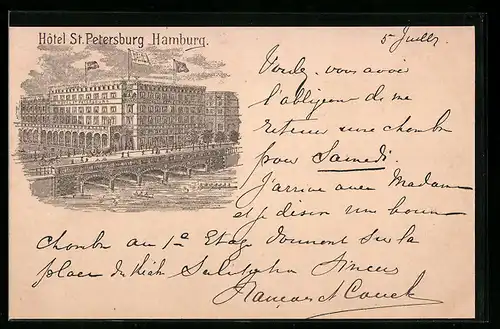 Hôtel St. Petersburg Hamburg.
5 Juillet
Voulez-vous avoir
l'obligeance de me
retenir une chambre
pour Samedi.
J'arrive avec Madame
et je désire une bonne
chambre au 1er Etage donnant sur la
place